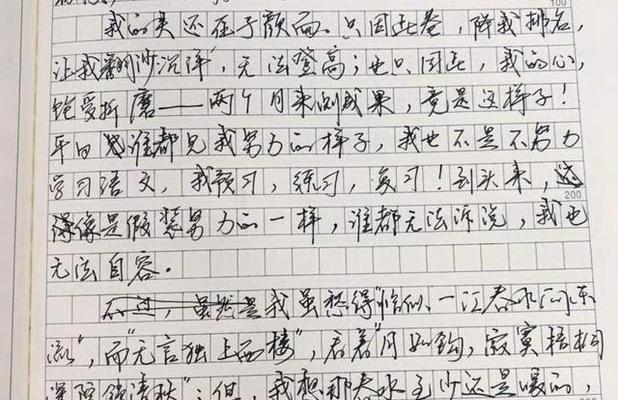 100
我的失还在于颜面。只因此卷，降我排名，
让我"折沙沉洋"，无法登高；也只因此，我的心，
饱受折磨——两个月来测成果，竟是这样子！
平日谁都见我努力的样子，我也不是不努力
学习语文，我预习，练习，复习！到头来，
200
得像是假装努力的一样，谁都无法诉说，我也
无法自容。
不过，虽然是我虽愁得"恰似一江春水向东
流"，而"无言独上西楼"，看着"月如钩，寂寞梧桐
深院锁清秋"；但，我想那春水至少还是暖的，